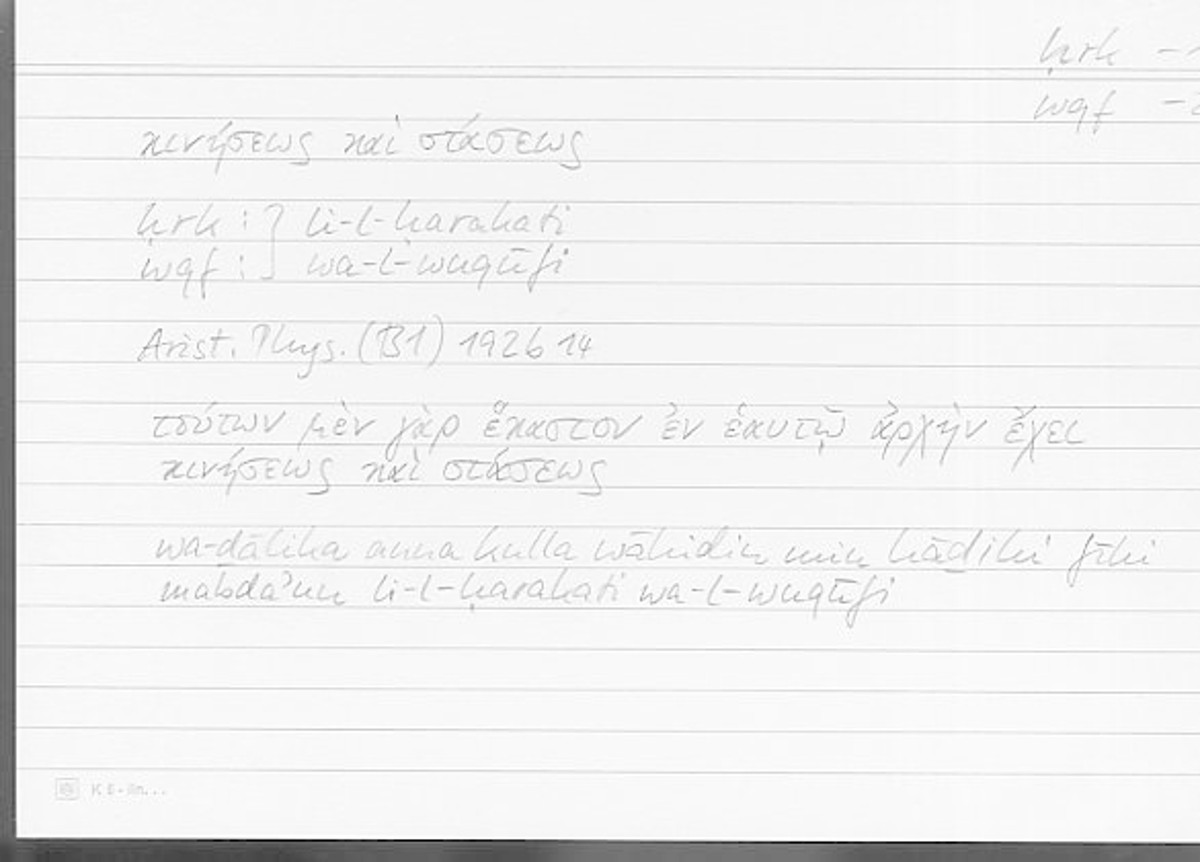 ḥrk –
wqf –
κινήσεως καὶ στάσεως
ḥrk : } li-l-ḥarakati
wqf : } wa-l-wuqūfi
Arist. Phys. (B1) 192b 14
τούτων μὲν γὰρ ἕκαστον ἐν ἑαυτῷ ἀρχὴν ἔχει
κινήσεως καὶ στάσεως
wa-ḏālika anna kulla wāḥidin min hāḏihi fīhi
mabda'un li-l-ḥarakati wa-l-wuqūfi